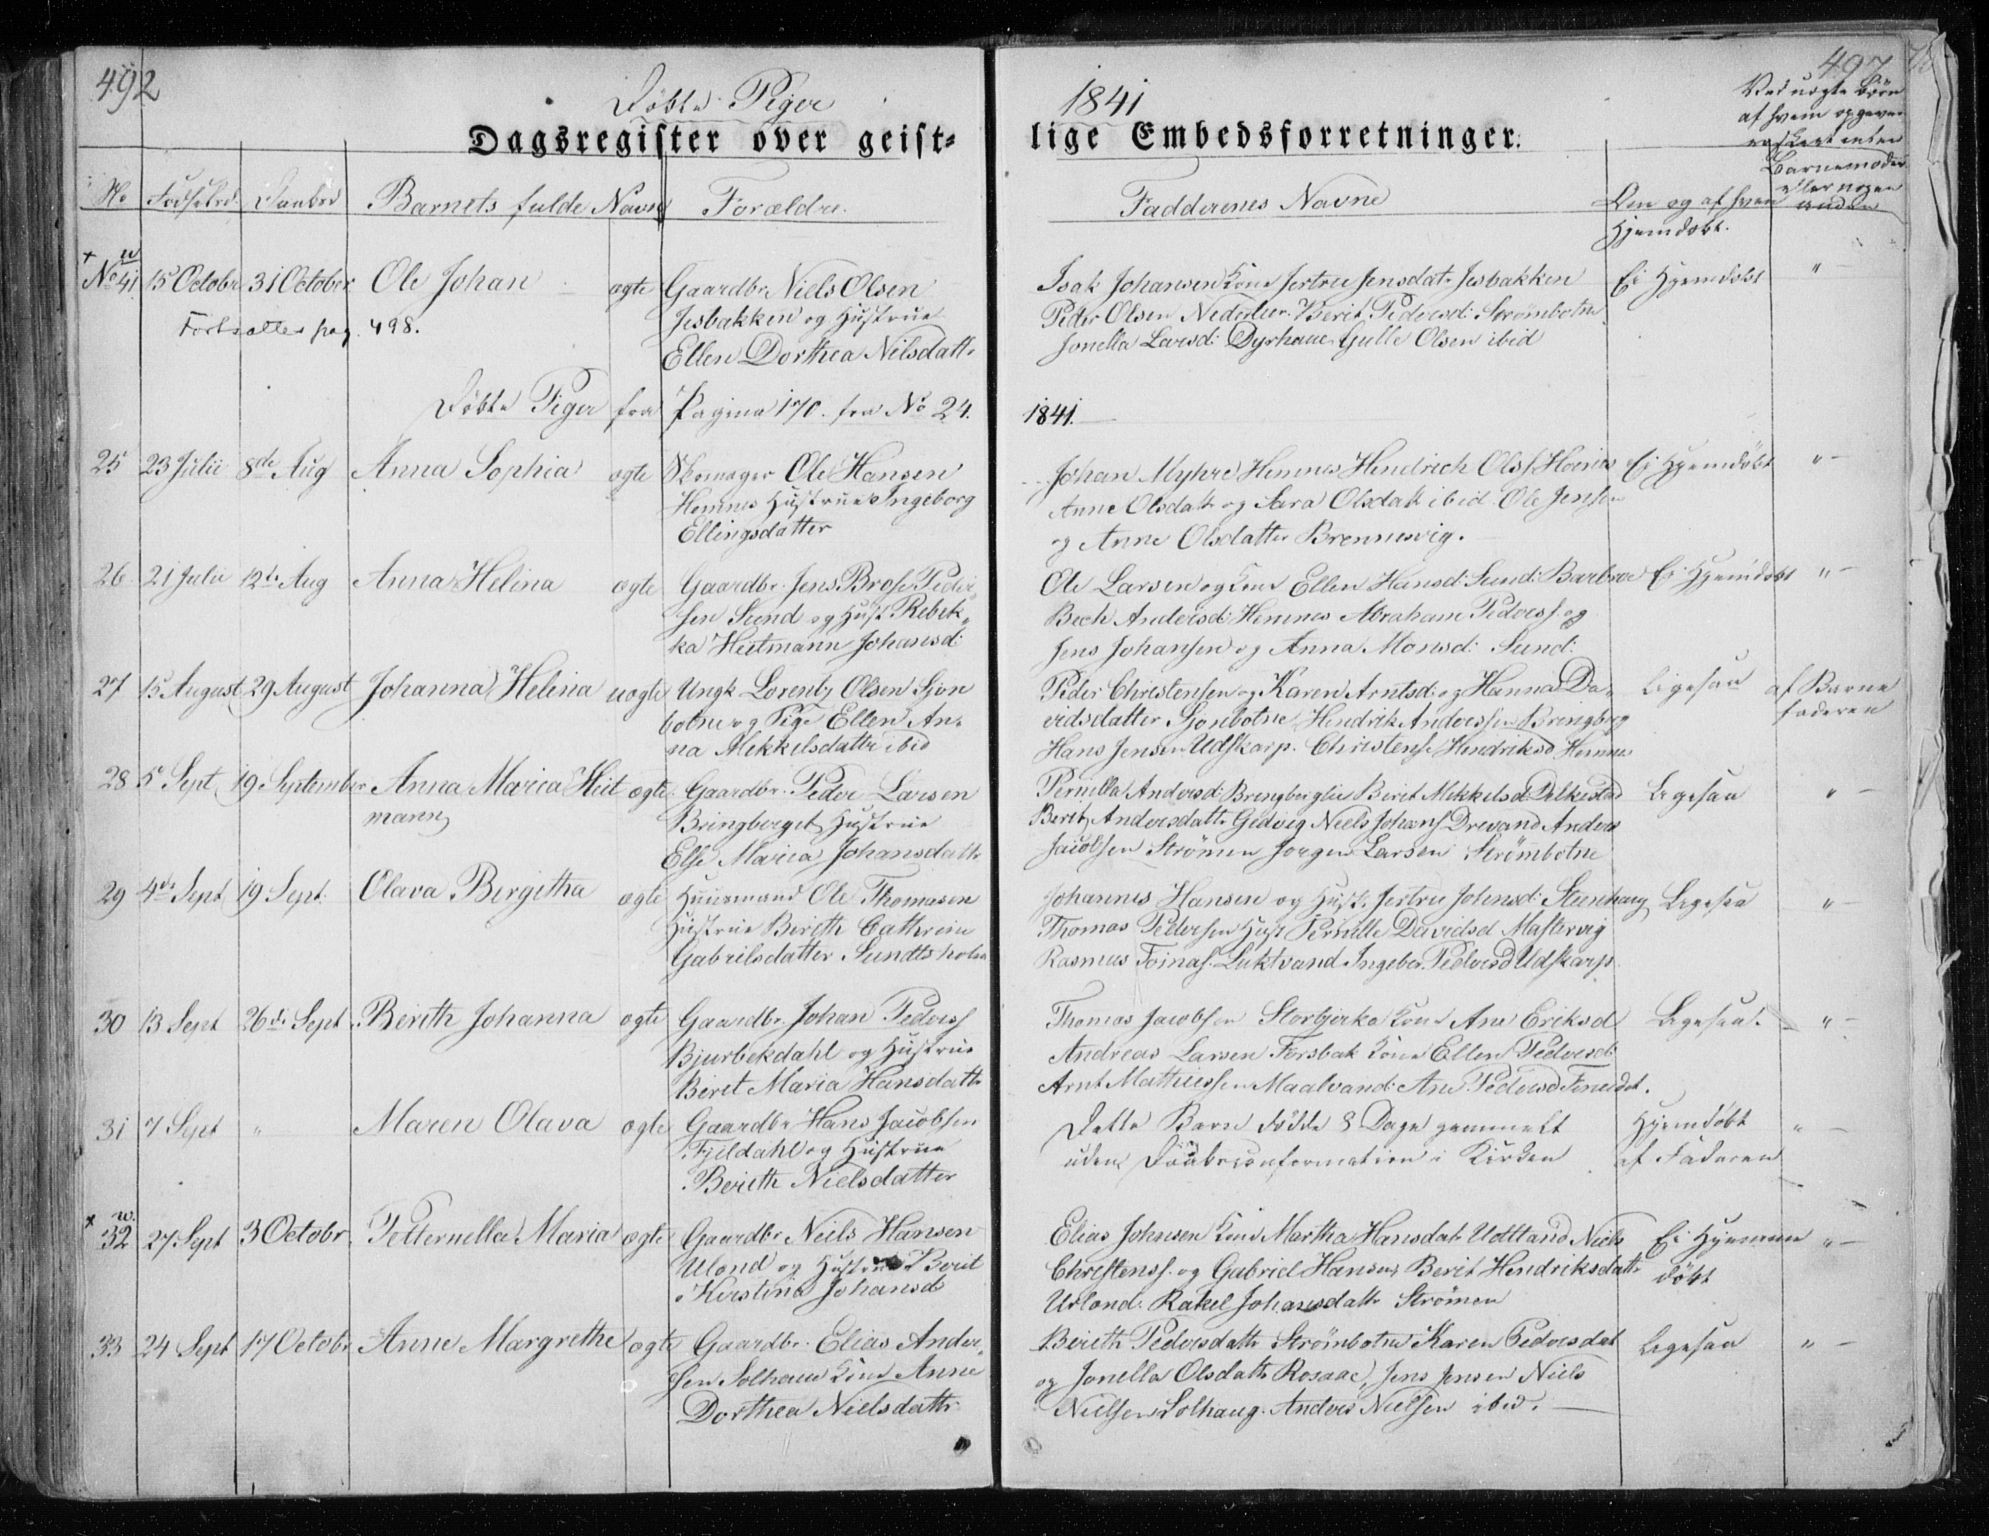 492
Døbte Piger
1841
497
Dagsregister over geist-
lige Embedsforretninger.
Ved uægte Børn
af hvem opgiven
enten
Barnemoder
eller nogen
anden
No Fødselsd. Daabsd Barnets fulde Navn Forældre.
Faddernes Navne
Om og af hvem
Hjemdøbt.
No 41 15 Octobr 31 October Ole Johan ægte Gaardbr. Niels Olsen
Jesbakken og Hustrue
Ellen Dorthea Nilsdattr
Fortsættes pag. 498.
Isak Johansen Kone Jertru Jensdatr Jesbakken Ei Hjemdøbt "
Peder Olsen Nederleer Berit Pedersd: Strømbotn
Jonella Larsd: Dyrhaue Gulle Olsen ibid
Døbte Piger fra Pagina 170. fra No 24.
1841.
25 23 Julii 8de Aug Anna Sophia ægte Skomager Ole Hansen
Hemnes Hustrue Ingeborg
Ellingsdatter
Johan Myhre Hemnes Hendrich Olsf. Ei Hjemdøbt "
Anne Olsdatr og Sara Olsdatr ibid. Ole Jensen
og Anne Olsdatter Brennesvig.
26. 21 Julii 12te Aug Anna Helina ægte Gaardbr. Jens Brose Peder-
sen Sund og Hust Rebek-
ka Heitmann Johansd:
Ole Larsen og Kone Ellen Hansd: Sund: Barbroe Ei Hjemdøbt "
Bech Andersd: Hemnes Abraham Pedersf og
Jens Johansen og Anna Monsd: Sund:
27 15 August 29 August Johanna Helina uægte Ungk. Lorentz Olsen Sjon
botne og Pige Ellen An-
na Mekkelsdattr ibid
Peder Christensen og Karen Arntsd: og Hanna Da- Ligesaa af Barne
vidsdatter Sjonbotne Hendrik Anderssen Bringberg faderen
Hans Jensen Udskarp. Christense Hendriksd Hemnes
28 5 Sept 19 September Anna Maria Heit ægte Gaardbr. Peder Larsen
mann Bringberget Hustrue
Else Maria Johansdattr
Pernilla Andersd: Bringberglie Berit Mekkelsd: Ligesaa "
Berit Andersdattr Gjedvig Niels Johansf Drevand Anders
Jacobsen Strømen Jørgen Larsen Strømbotne
29 4de Sept 19 Sept. Olava Bergitha ægte Huusmand Ole Thomasen
Hustrue Berith Cathrine
Gabrielsdatter Sundtsholm
Johannes Hansen og Hust. Jertru Johnsd: Steenhaug Ligesaa "
Thomas Pedersen Hust Pernille Davidsd Mastervig
Rasmus Toinas. Luktvand Ingeber Pedersd Udskarp.
30 13 Sept 26de Sept. Berith Johanna ægte Gaardbr. Johan Pedersf
Bjurbekdahl og Hustrue
Berit Maria Hansdattr
Thomas Jacobsen Storbjerka Kone Ane Eriksd Ligesaa. "
Andreas Larsen Forsbak Kone Ellen Pedersd:
Arnt Mathiessen Maalvand: Ane Pedersd
31 7 Sept " Maren Olava ægte Gaardbr Hans Jacobsen
Fjeldahl og Hustrue
Berith Nielsdatter
Dette Barn døde 8 Dage gammelt Hjemdøbt "
uden Daabsconfirmation i Kirken af Faderen
32 27 Sept 3 Octobr. Petternella Maria ægte Gaardbr Neils Hansen
Uland og Hustrue Berit
Kirstina Johansd
Elias Johnsen Kone Martha Hansdatr Udtland Niels Ei Hjemm "
Christensf. og Gabriel Hansen Berit Hendriksdattr døbt
Urland. Rakel Johansdattr Strømen
33 24 Sept 17 Octobr Anne Margrethe ægte Gaardbr. Elias Ander-
sen Solhaue Kone Anne
Dorthea Nielsdattr
Berith Pedersdattr Strømbotne Karen Pedersdat Ligesaa "
og Jonella Olsdattr Rosaae, Jens Jensen Niels
Nielsen Solhaug. Anders Nielsen ibid.